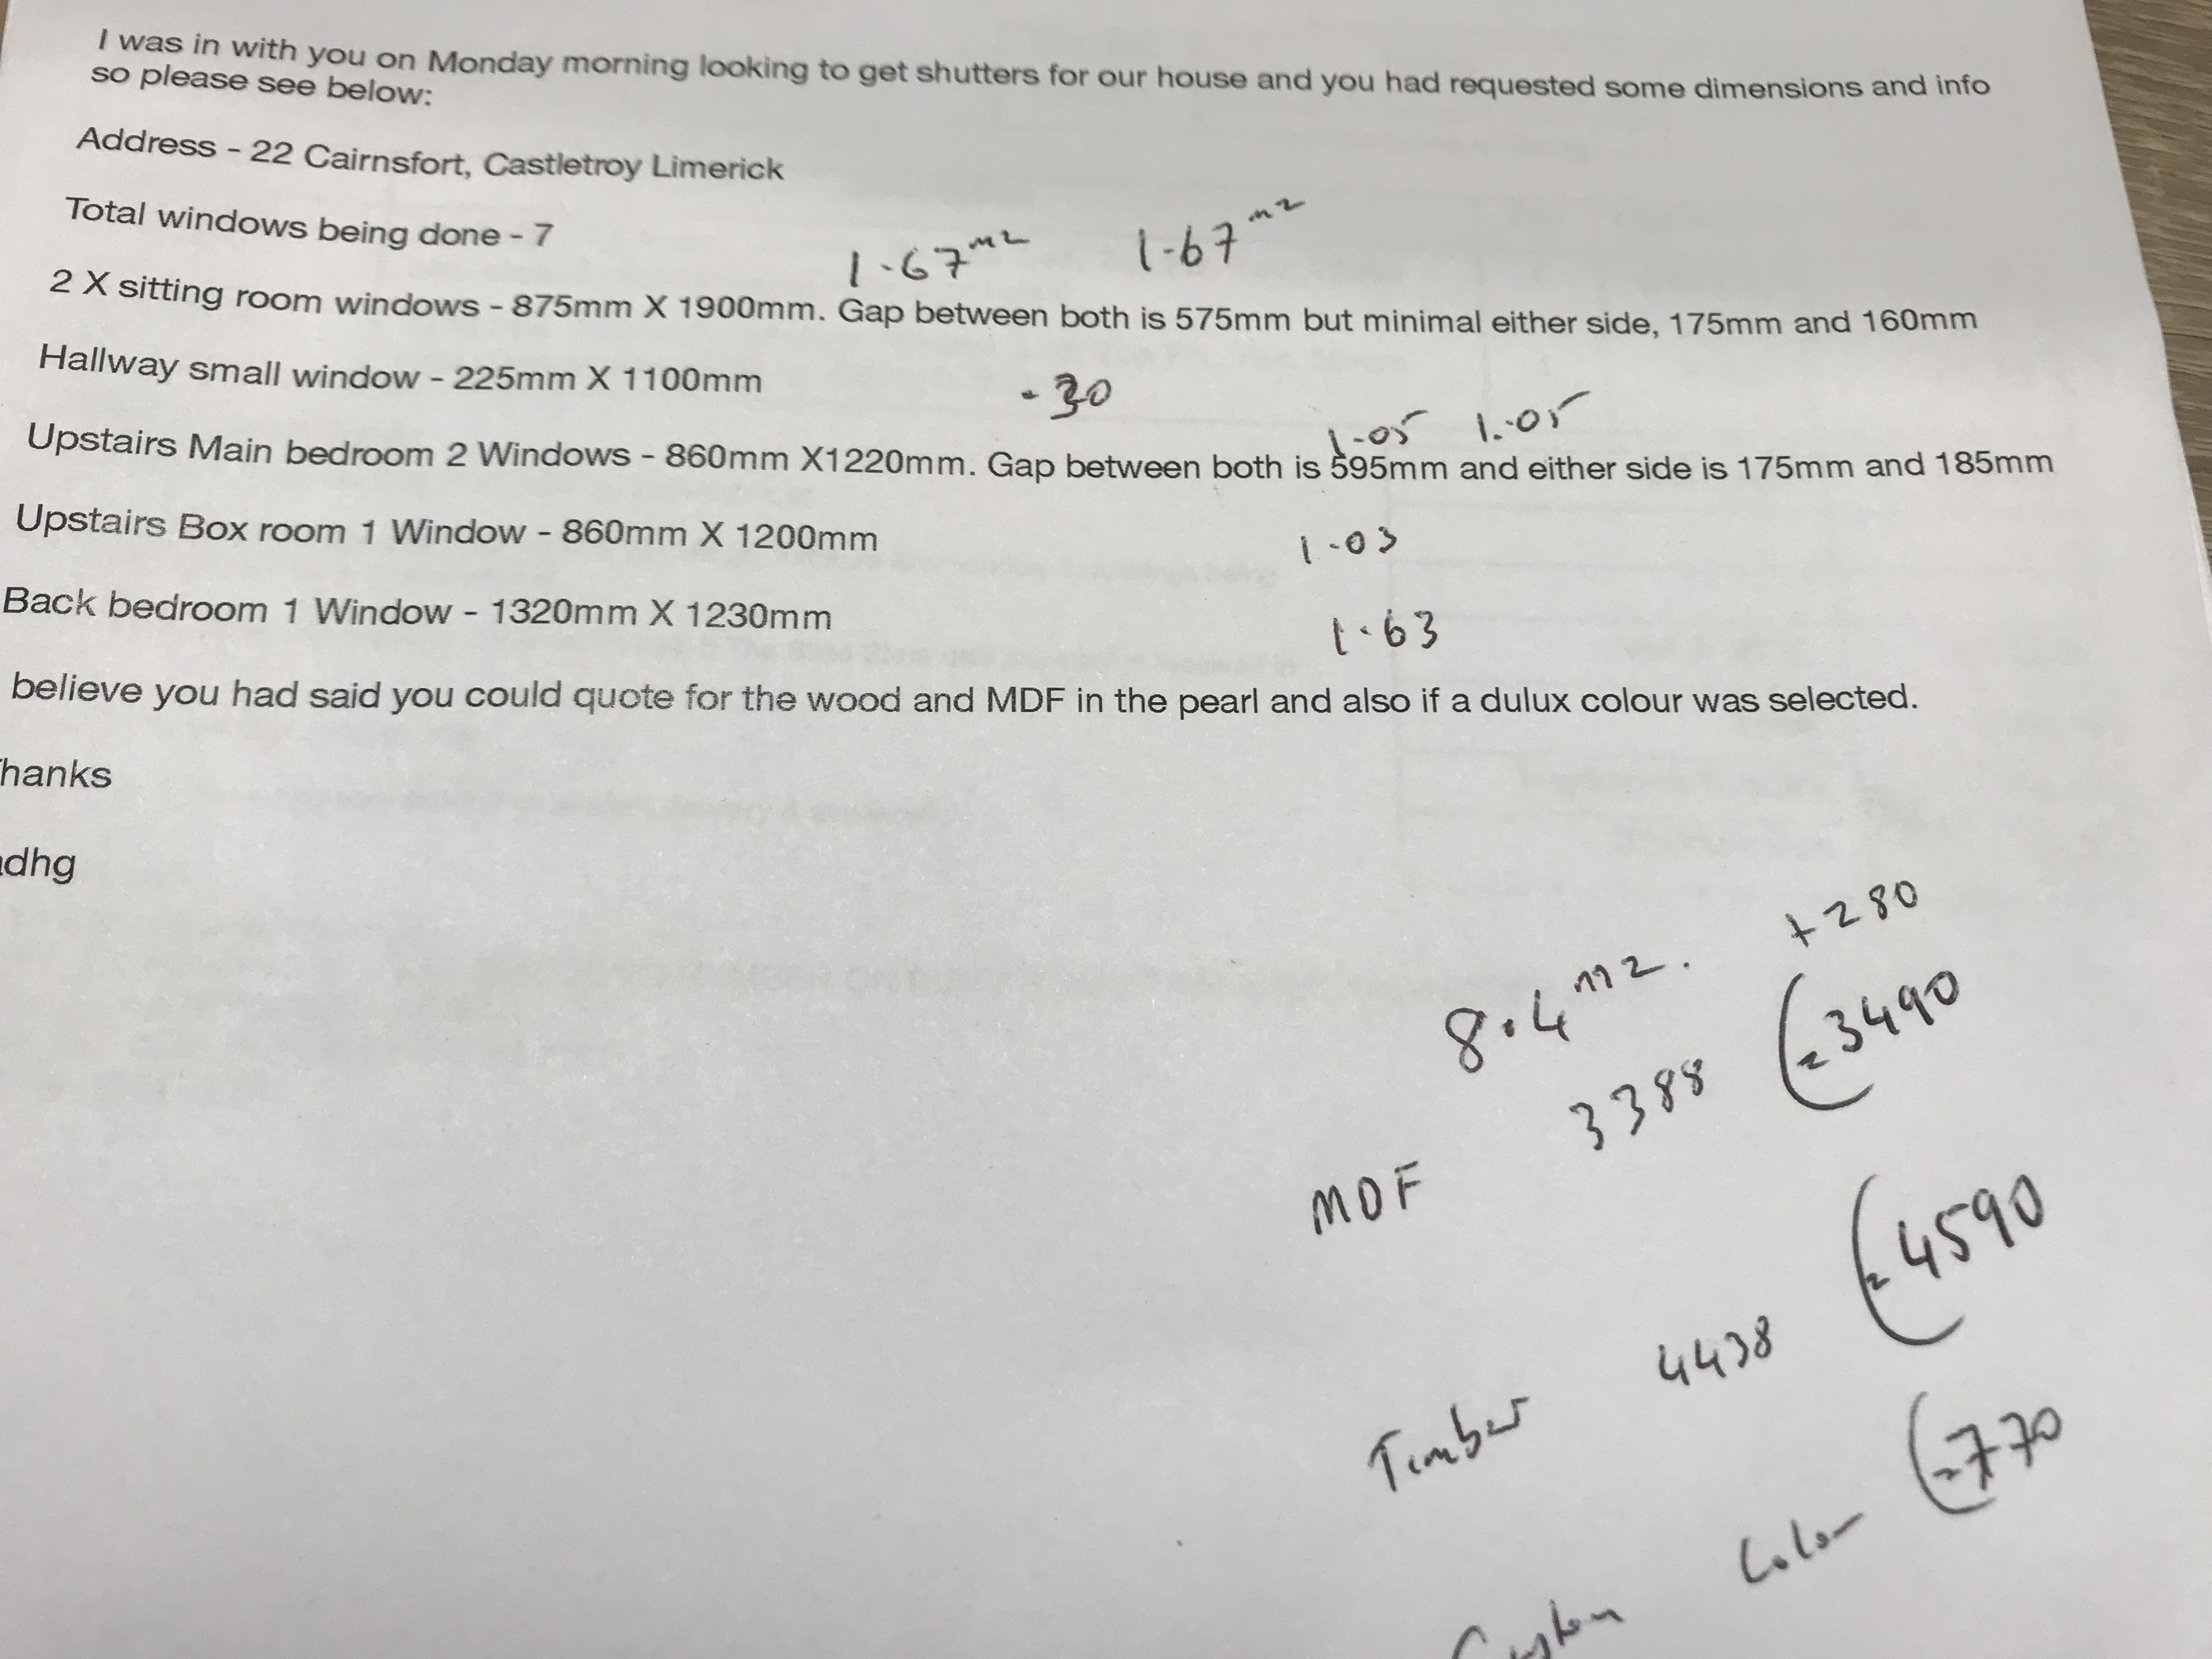 I was in with you on Monday morning looking to get shutters for our house and you had requested some dimensions and info
so please see below:
Address - 22 Cairnsfort, Castletroy Limerick
Total windows being done - 7
1.67 m2 1.67 m2
2 X sitting room windows - 875mm X 1900mm. Gap between both is 575mm but minimal either side, 175mm and 160mm
Hallway small window - 225mm X 1100mm .30
1.05 1.05
Upstairs Main bedroom 2 Windows - 860mm X1220mm. Gap between both is 595mm and either side is 175mm and 185mm
Upstairs Box room 1 Window - 860mm X 1200mm 1.03
Back bedroom 1 Window - 1320mm X 1230mm 1.63
believe you had said you could quote for the wood and MDF in the pearl and also if a dulux colour was selected.
hanks
adhg
8.4 m2. +280
MDF 3388 = 3490
Timber 4438 = 4590
Custom Color = 770